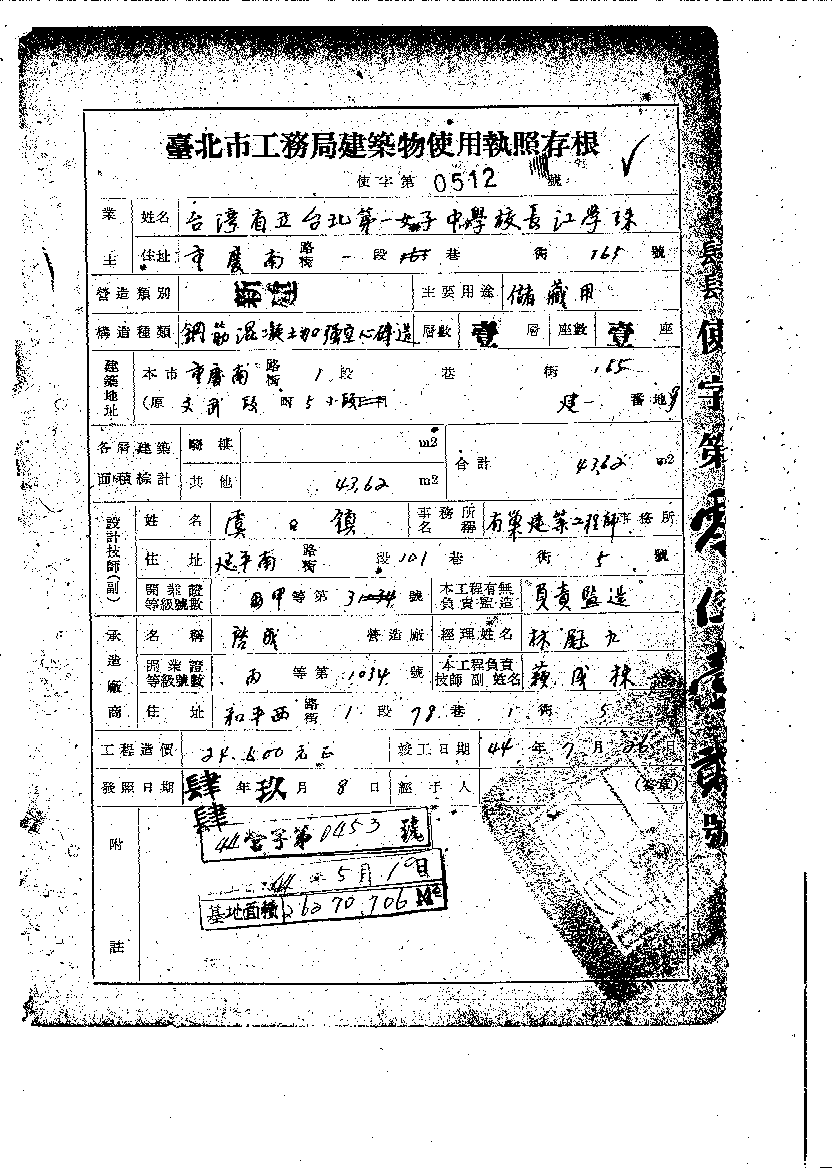 臺北市工務局建築物使用執照存根
使字第 0512 號
業主 姓名 台灣省立台北第一女子中學校長江學珠
住址 重慶南 路街 一 段 165 巷 街 165 號
營造類別 新建 主要用途 儲藏用
構造種類 鋼筋混凝土加強空心磚造 層數 壹 層 座數 壹 座
建築地址 本市 重慶南 路街 1 段 巷 街 165
(原 文武段 町 5 小段 建一 番地 9
各層建築面積綜計 騎樓 m2 合計 43.62 m2
其他 43.62 m2
設計技師(副) 姓名 虞曰鎮 事務所名稱 有巢建築工程師事務所
住址 延平南 路街 段 101 巷 街 5 號
開業證等級號數 甲 等第 號 本工程有無負責監造 負責監造
承造廠商 名稱 啓成 營造廠 經理姓名 林
開業證等級號數 丙 等第 1034 號 本工程負責技師副姓名 蘇成棟
住址 和平西 路街 1 段 78 巷 1 街 5
工程造價 24.500元正 竣工日期 44 年 7 月 26 日
發照日期 肆肆 年 玖 月 8 日 經手人 (簽章)
附註
44營字第0453號
44年5月10日
基地面積 26270.706 M2
肆肆使字第零伍壹貳號